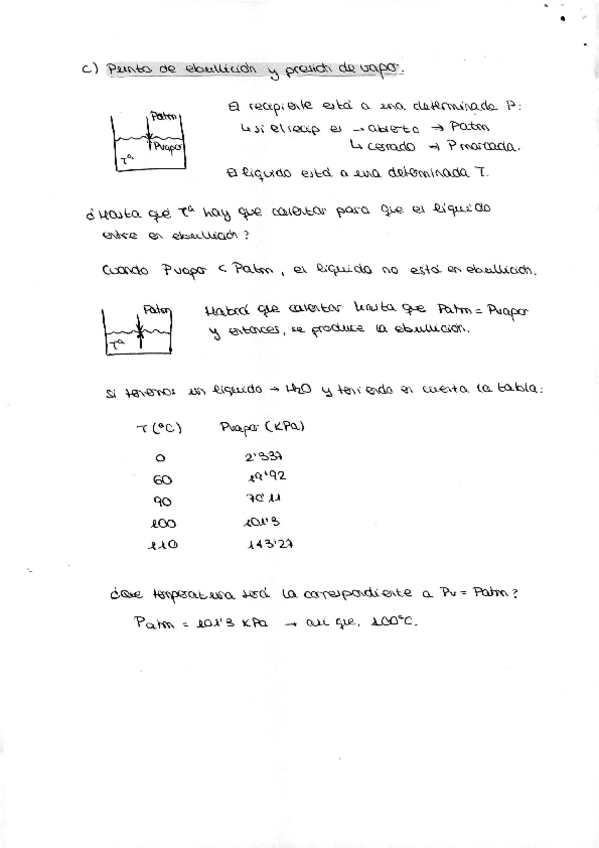 c) Punto de ebullición y presión de vapor.
Patm
Pvapor
Tª
El recipiente está a una determinada P:
↳ si el recip es → abierto → Patm
↳ cerrado → P marcada.
El líquido está a una determinada T.
¿Hasta qué Tª hay que calentar para que el líquido
entre en ebullición?
Cuando Pvapor < Patm, el líquido no está en ebullición.
Patm
Tª
Habrá que calentar hasta que Patm = Pvapor
y entonces, se produce la ebullición.
Si tenemos un líquido → H2O y teniendo en cuenta la tabla:
T (ºC) Pvapor (KPa)
0 2'337
60 19'92
90 70'11
100 101'3
110 143'27
¿Qué temperatura será la correspondiente a Pv = Patm?
Patm = 101'3 KPa → así que, 100ºC.